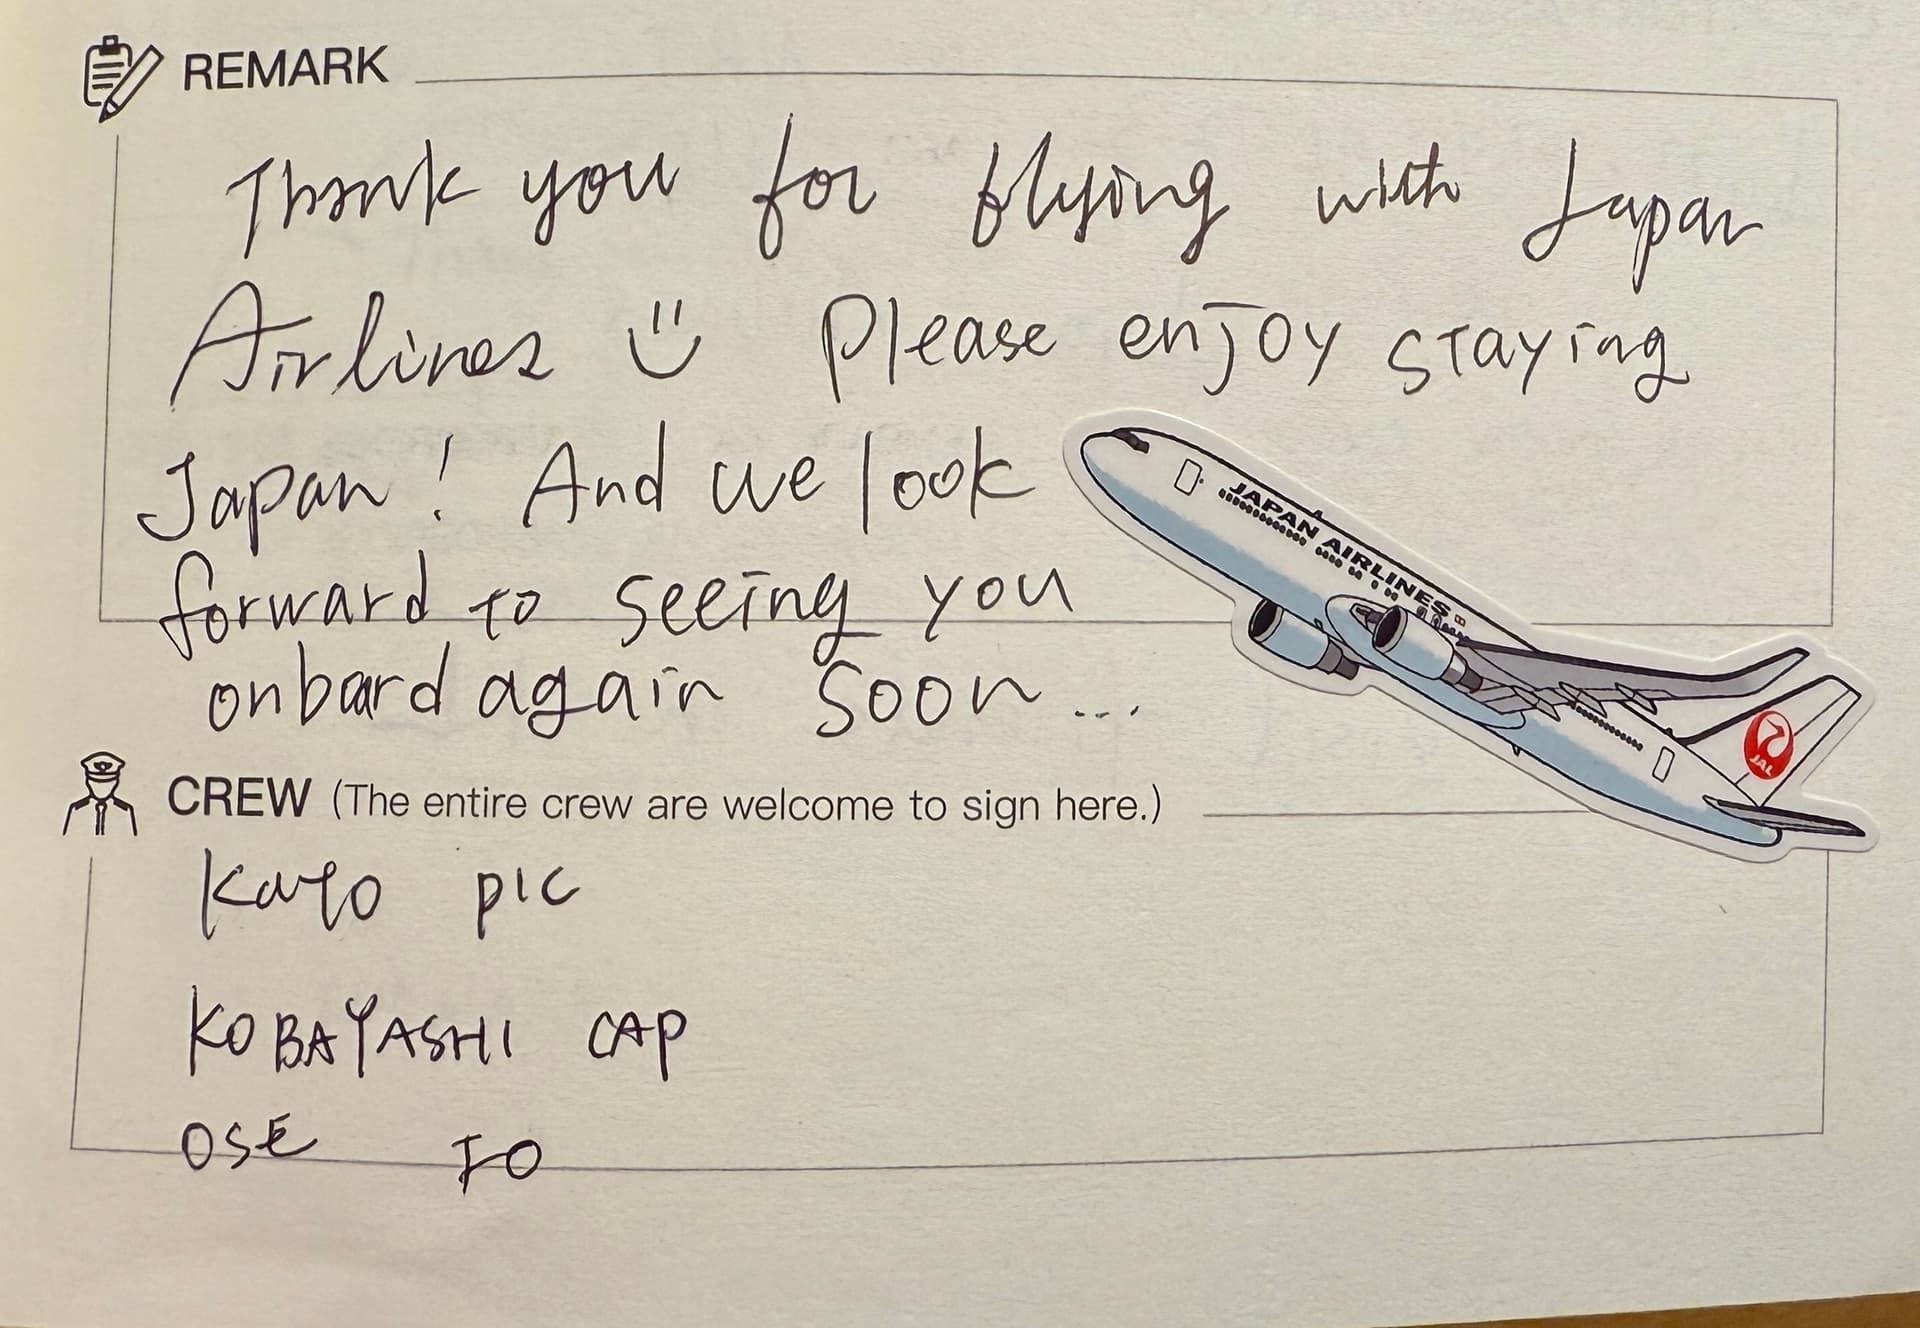 REMARK
Thank you for flying with Japan
Airlines Please enjoy staying
Japan! And we look
forward to seeing you
onboard again soon...
JAPAN AIRLINES
JAL
CREW (The entire crew are welcome to sign here.)
Kato PIC
KOBAYASHI CAP
OSE FO